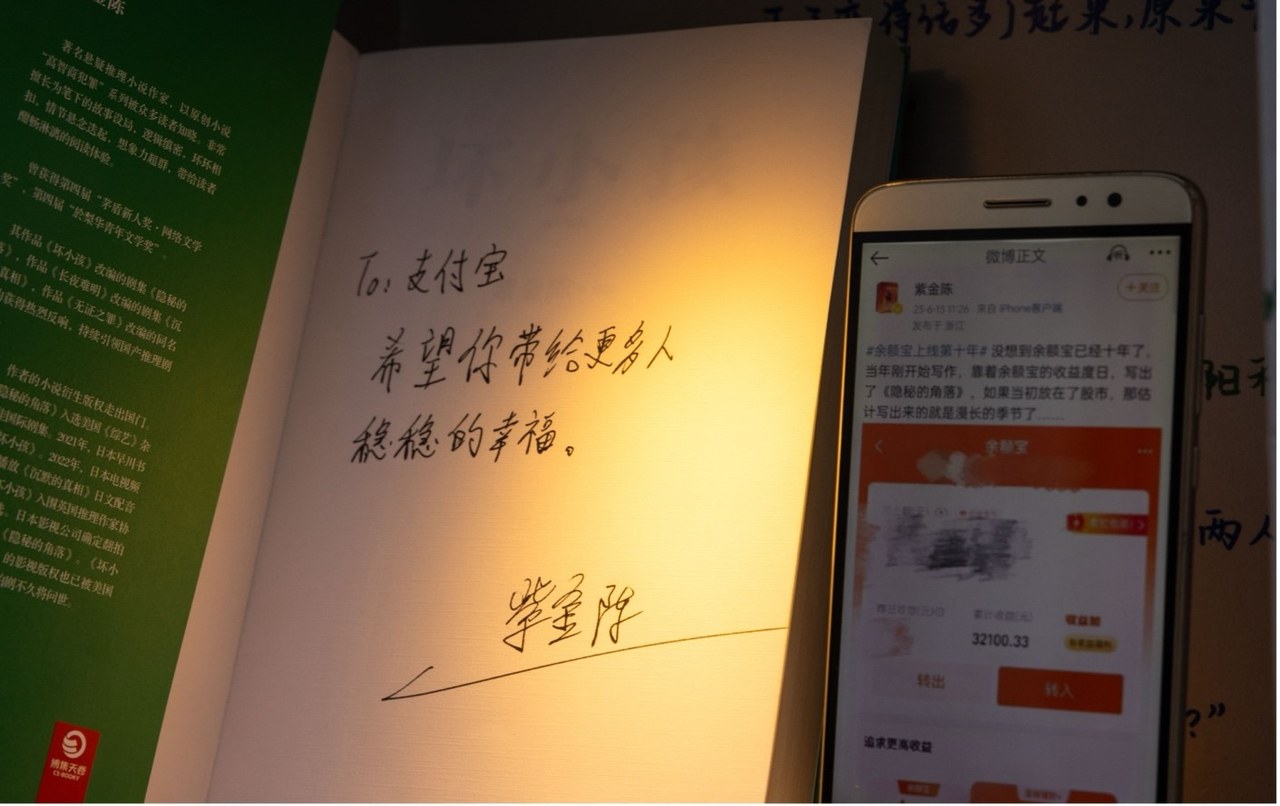 著名悬疑推理小说作家，以原创小说
“高智商犯罪”系列被众多读者知晓。非常
擅长为笔下的故事设局，逻辑缜密，环环相
扣，情节悬念迭起，想象力超群，带给读者
酣畅淋漓的阅读体验。
曾获得第四届“茅盾新人奖·网络文学
奖”、第四届“於梨华青年文学奖”。
其作品《坏小孩》改编的剧集《隐秘的
落》、作品《长夜难明》改编的剧集《沉
真相》、作品《无证之罪》改编的同名
获得热烈反响，持续引领国产推理剧
作者的小说衍生版权走出国门。
隐秘的角落》入选美国《综艺》杂
国际剧集。2021年，日本早川书
坏小孩》。2022年，日本电视频
播放《沉默的真相》日文配音
坏小孩》入围英国推理作家协
。日本影视公司确定翻拍
《隐秘的角落》。《坏小
的影视版权也已被美国
拍剧不久将问世。
博集天卷
CS-BOOKY
To：支付宝
希望你带给更多人
稳稳的幸福。
紫金陈
得话多了起来，原来
阳
两人
？”
微博正文
紫金陈
+关注
23-6-13 11:26 来自 iPhone客户端
发布于 浙江
#余额宝上线第十年# 没想到余额宝已经十年了，
当年刚开始写作，靠着余额宝的收益度日，写出
了《隐秘的角落》，如果当初放在了股市，那估
计写出来的就是漫长的季节了……
余额宝
累计收益(元)
32100.33
转出
转入
追求更高收益